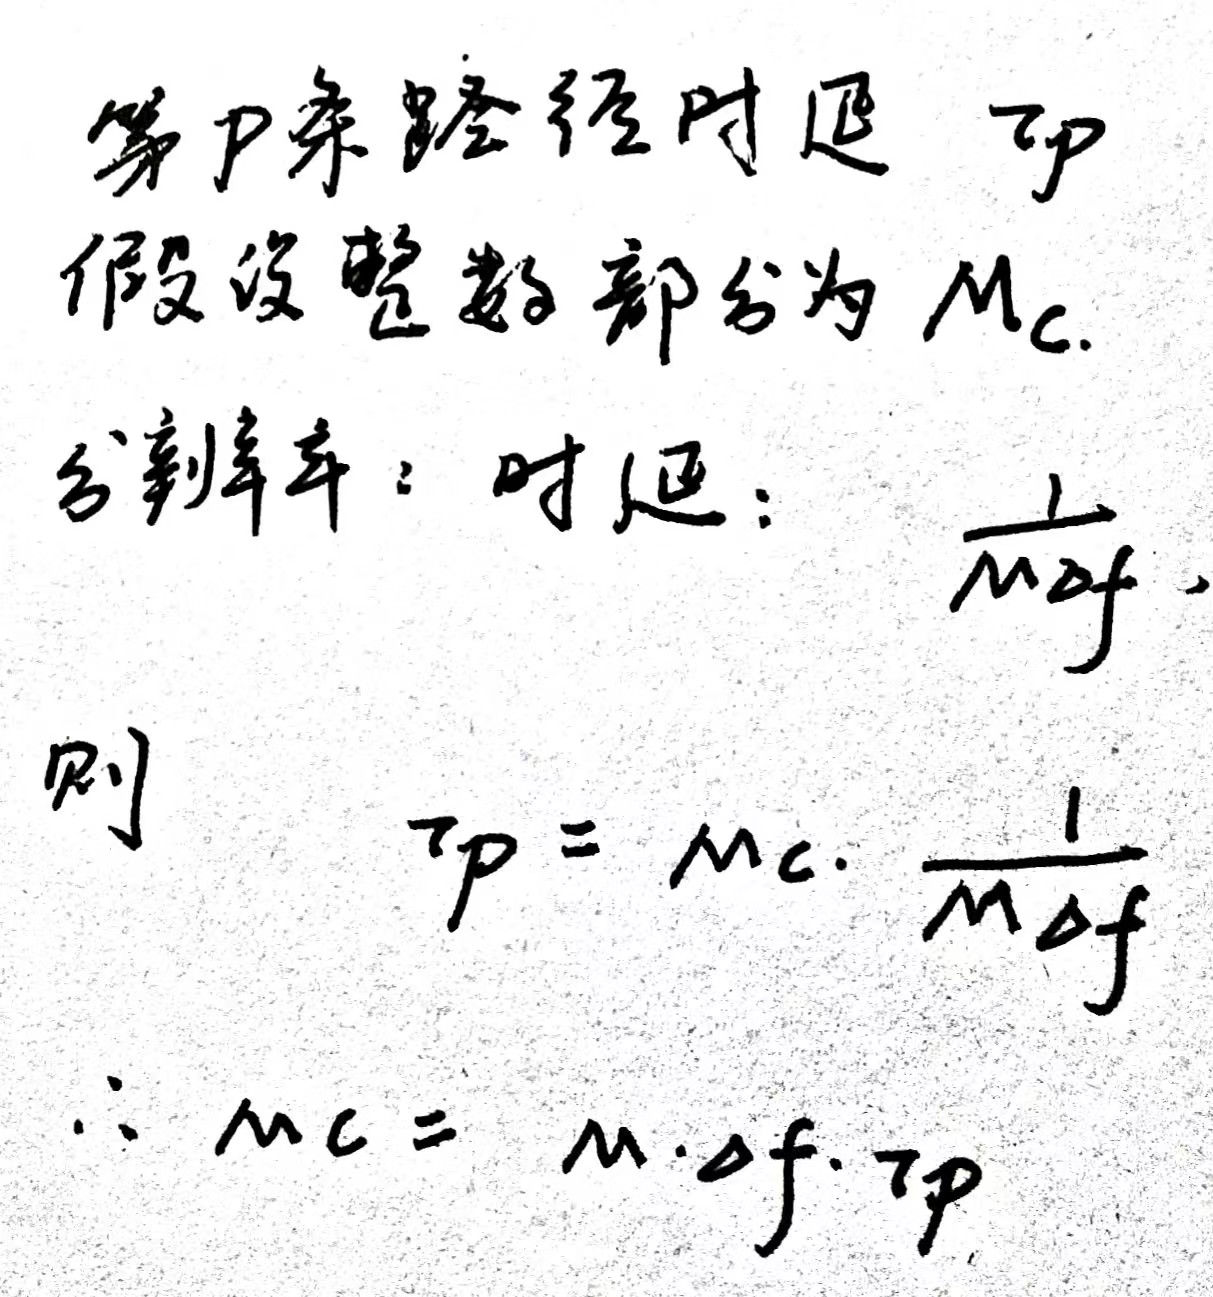 第P条路径时延 τp
假设整数部分为 Mc.
分辨率：时延： 1/MΔf.
则 τp = Mc. 1/MΔf
∴ Mc = M·Δf·τp